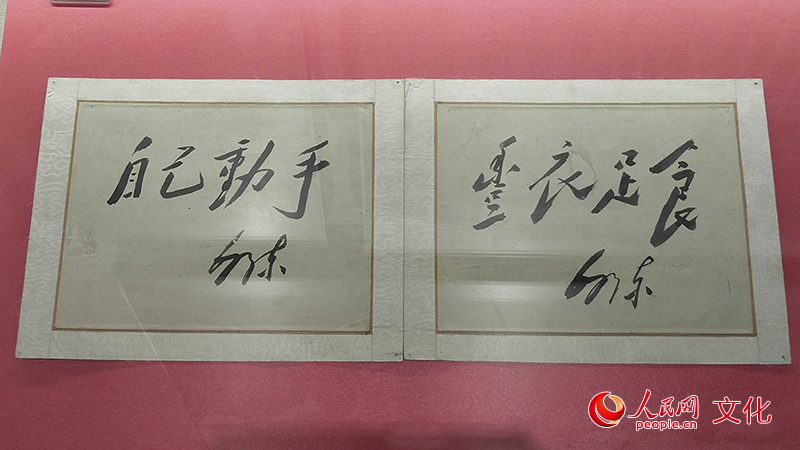 自己動手
澤东
豐衣足食
澤东
人民网 文化
people.cn